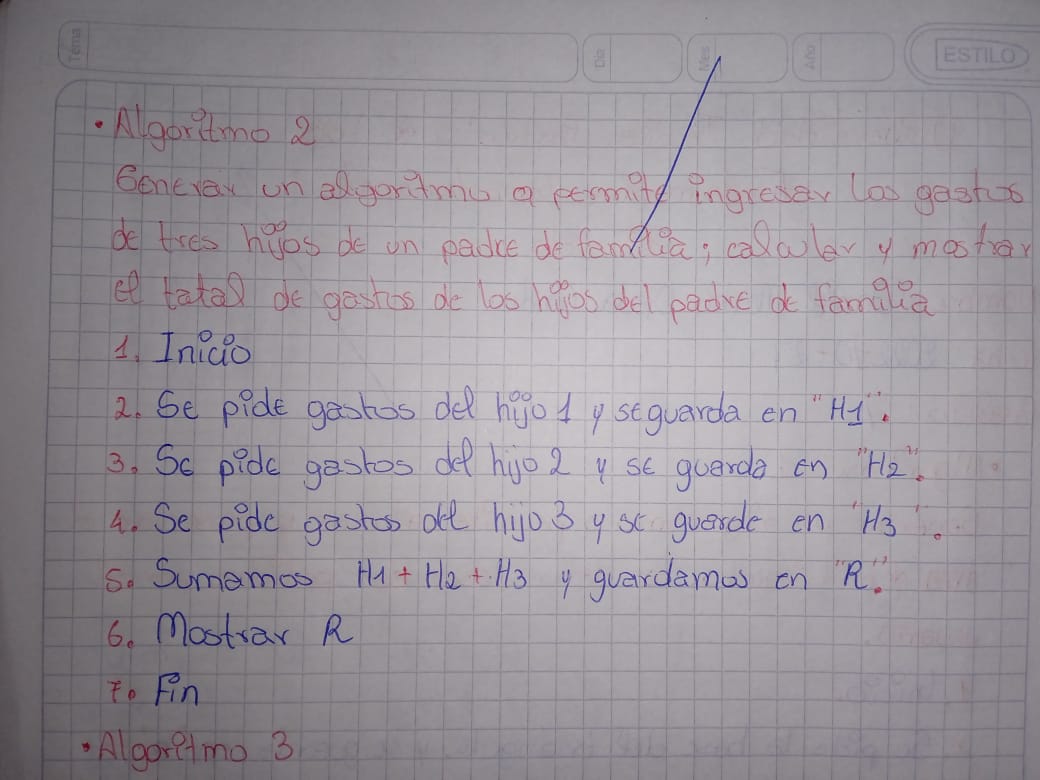 Tema
Dia
Mes
Año
ESTILO
• Algoritmo 2
Generar un algoritmo q permita ingresar los gastos
de tres hijos de un padre de familia; calcular y mostrar
el total de gastos de los hijos del padre de familia
1. Inicio
2. Se pide gastos del hijo 1 y se guarda en "H1".
3. Se pide gastos del hijo 2 y se guarda en "H2".
4. Se pide gastos del hijo 3 y se guarde en "H3".
5. Sumamos H1 + H2 + H3 y guardamos en "R".
6. Mostrar R
7. Fin
• Algoritmo 3